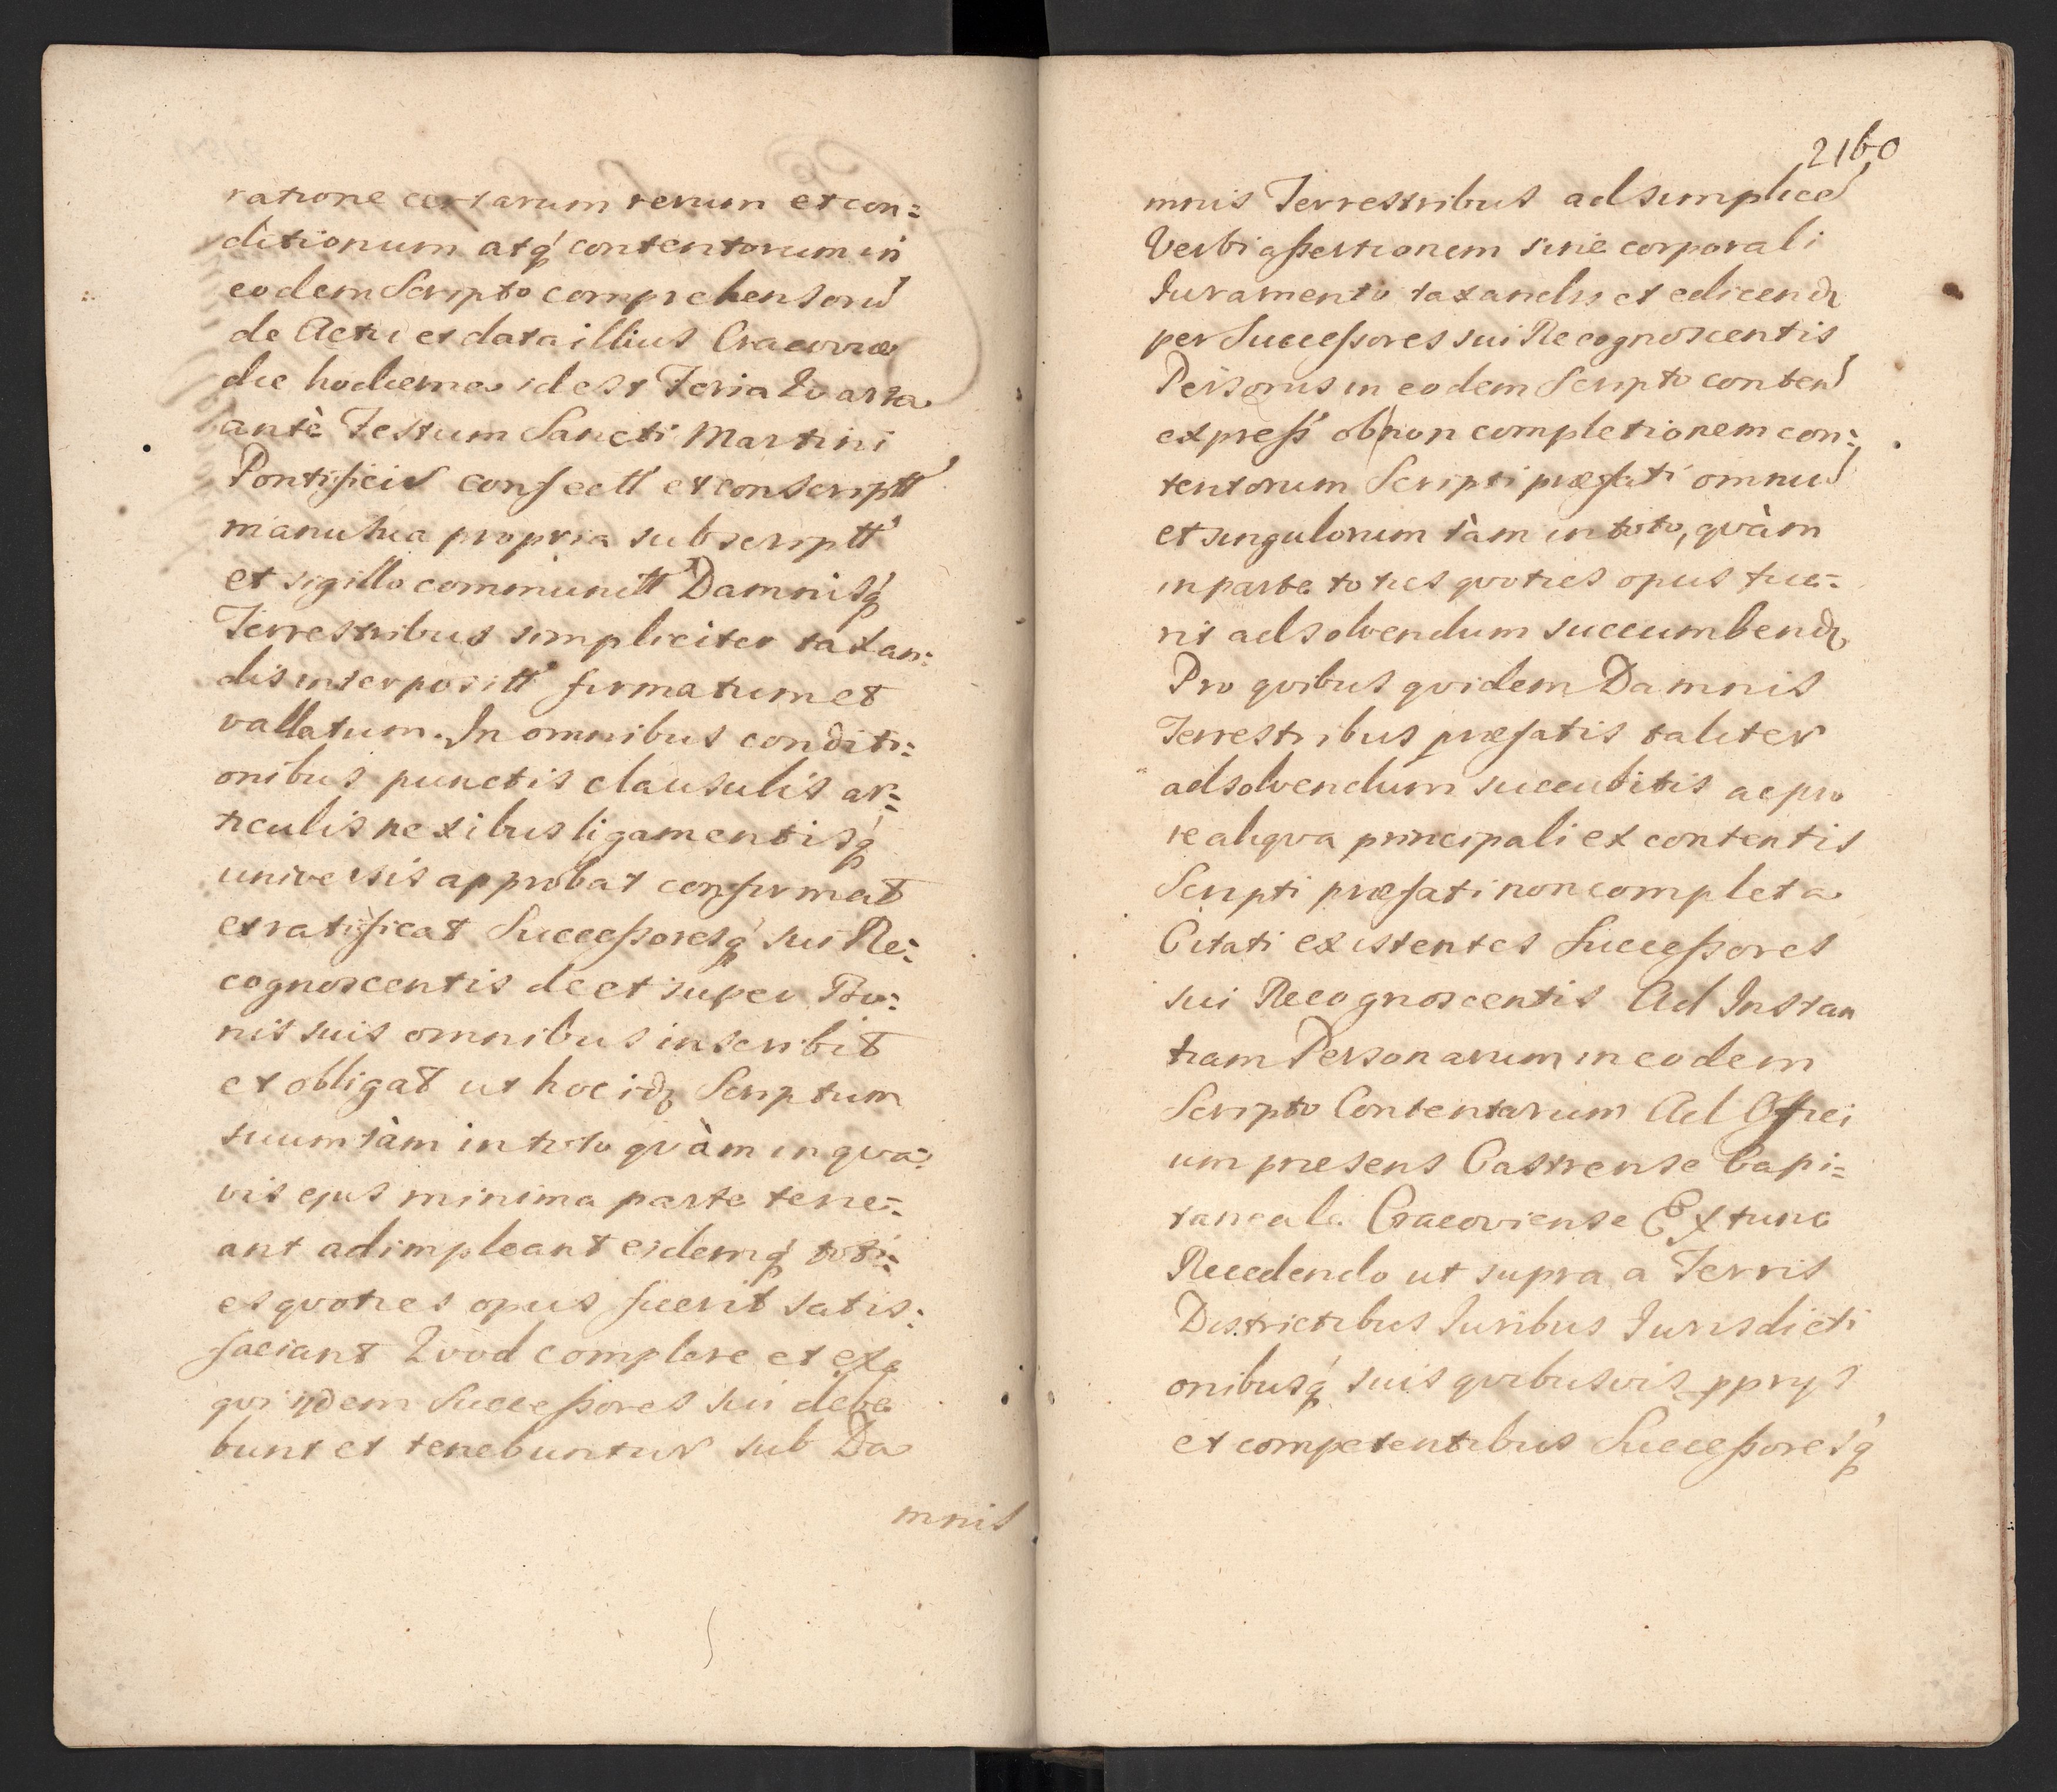 ratione certarum rerum et con:
ditionum atq́ contentorum in
eodem Scripto comprehensorũ
de Actu et data illius Cracoviæ
die hodierna id est Feria Qvarta
antè Festum Sancti Martini
Pontificis confectt et conscriptt
manu sua propria subscriptt
et sigillo communitt Damnisq́
Terrestribus simpliciter taxan:
dis interpositt firmatum et
vallatum. In omnibus conditi:
onibus punctis clausulis ar:
ticulis nexibus ligamentisq́
universis approbat confirmat
et ratificat Successoresq́ sui Re:
cognoscentis de et super Bo:
nis suis omnibus inscribit
et obligat ut hoc idq Scriptum
suum tàm in toto qvàm in qva:
vis ejus minima parte tene:
ant adimpleant eidemq́ toti:
es qvoties opus fuerit satis:
faciant Qvod complere et exe
qvi ijdem Successores sui debe
bunt et tenebuntur sub Da
mnis
2160
mnis Terrestribus ad simplicẽ
Verbi assertionem sine corporali
Juramento taxandis et edicendq
per Successores sui Recognoscentis
Personis in eodem Scripto contenͭ
express ob non completionem con:
tentorum Scripti præfati omniũ
et singulorum tàm in toto, qvàm
in parte toties qvoties opus fue:
rit ad solvendum succumbendq
Pro qvibus qvidem Damnis
Terrestribus præfatis taliter
ad solvendum succubitis ac pro
re aliqva principali ex contentis
Scripti præfati non completa
Citati existentes Successores
sui Recognoscentis Ad Instan
tiam Personarum in eodem
Scripto Contentarum Ad Offici
um præsens Castrense Capi:
taneale Cracoviense Ex tunc
Recedendo ut supra a Terris
Districtibus Juribus Jurisdicti
onibusq́ suis qvibusvis pprijs
et competentibus Successoresq́